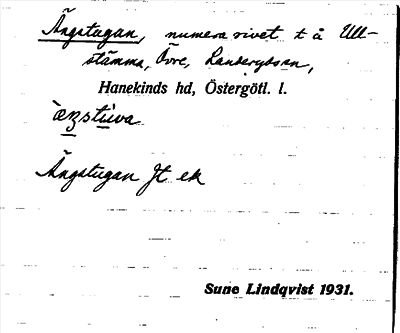 Ängstugan, numera rivet t å Ull-
stämma, Övre, Landeryds sn,
Hanekinds hd, Östergötl. l.
Ängstugan Jt ek
Sune Lindqvist 1931.